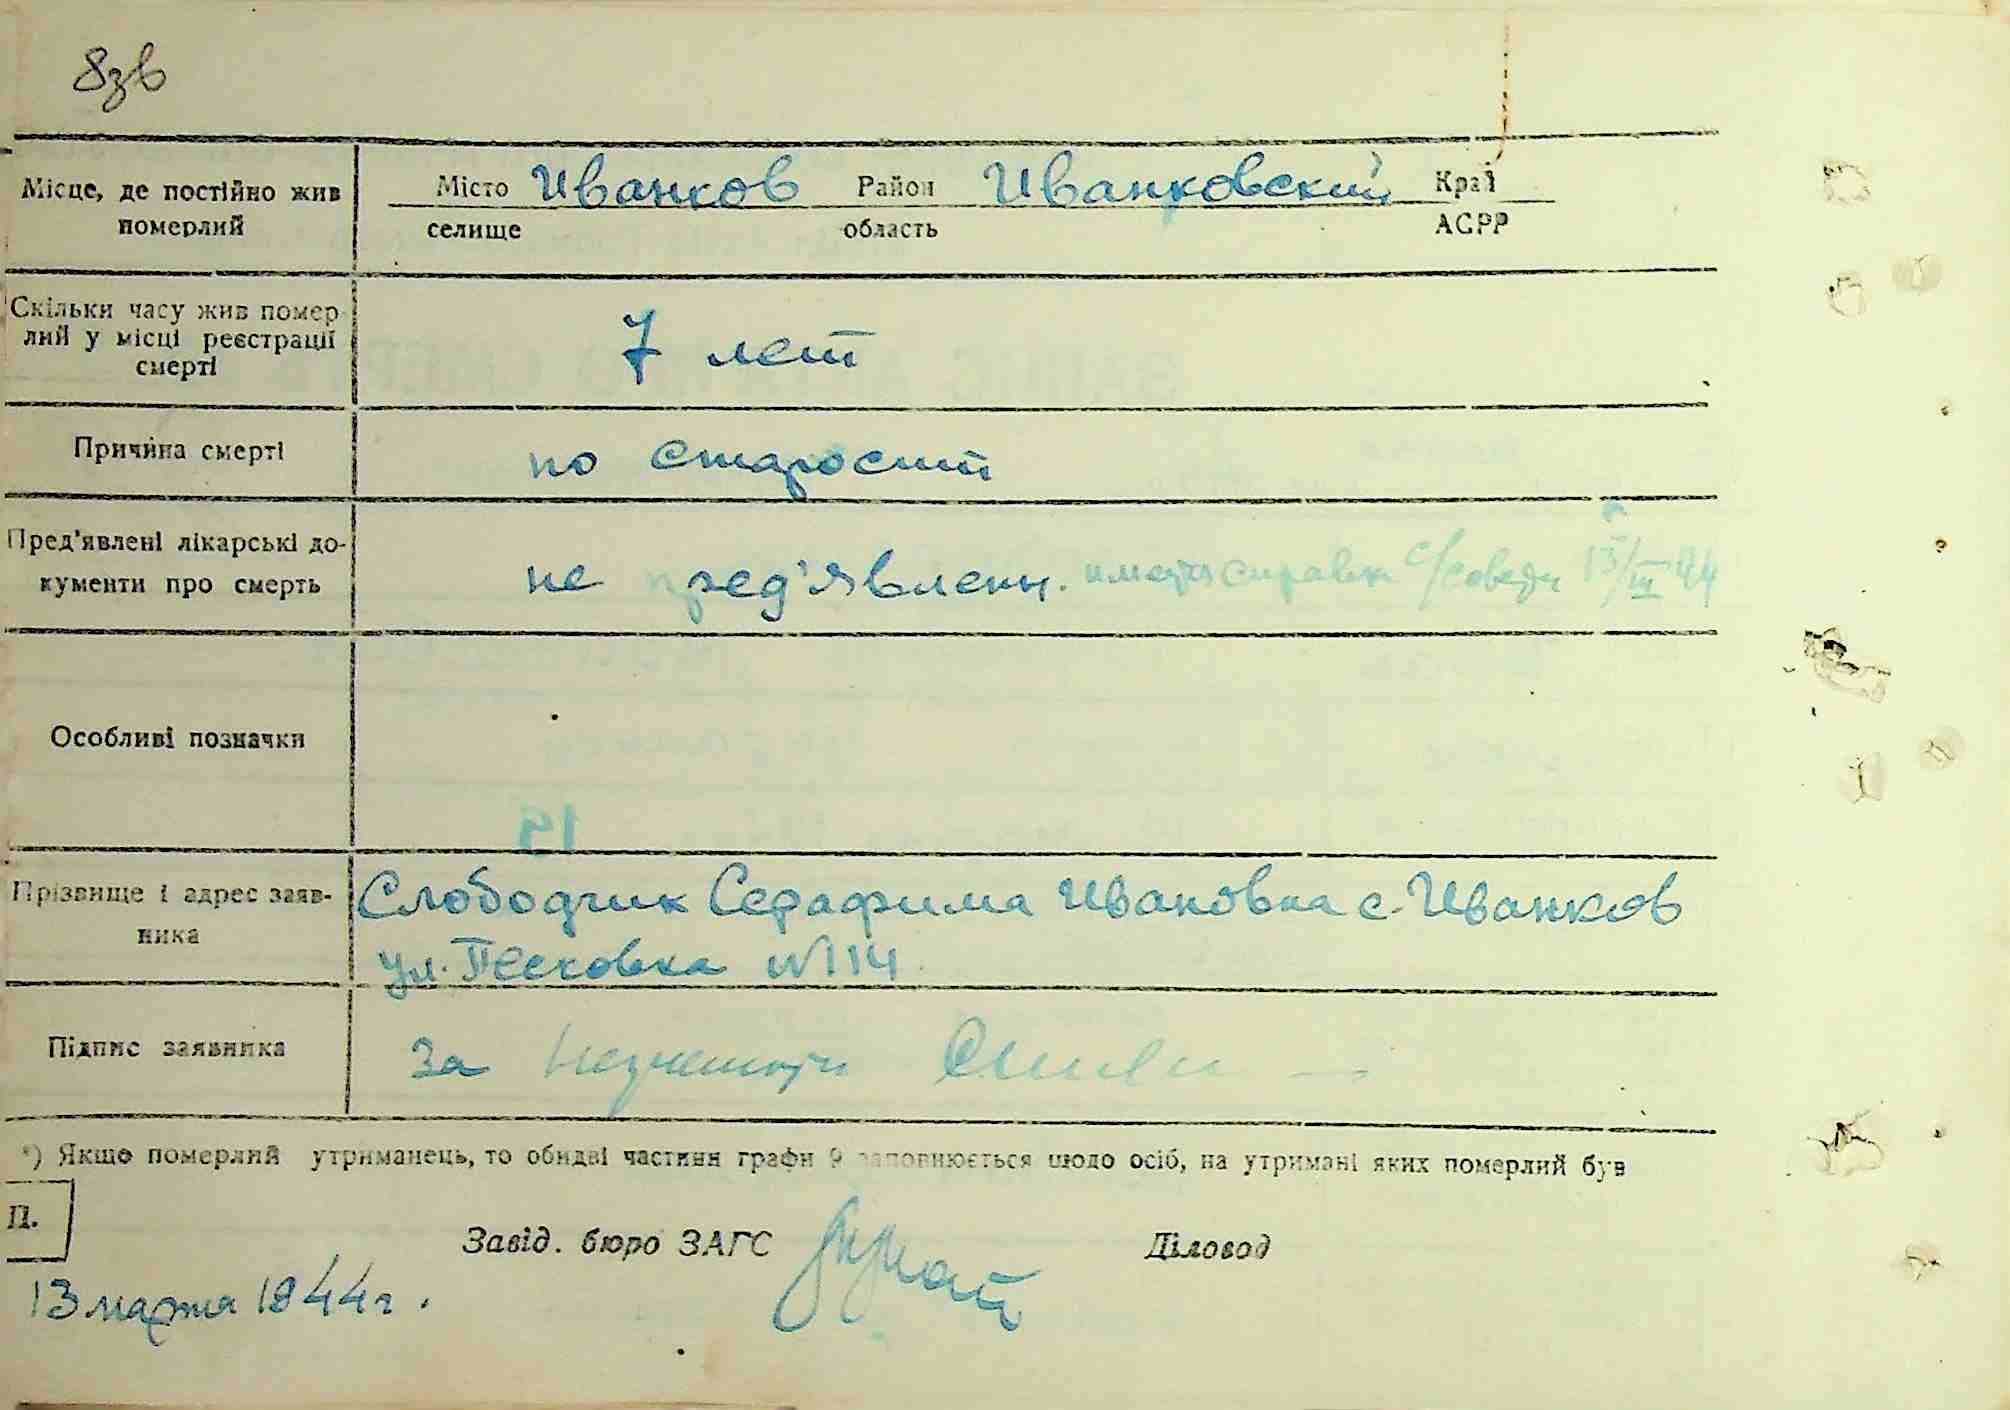 8зв
Місце, де постійно жив
померлий
Місто Иванков Район Иванковский Край
селище область АСРР
Скільки часу жив помер
лий у місці реєстрації
смерті
7 лет
Причина смерті
по старости
Пред'явлені лікарські до-
кументи про смерть
не пред'явлены. имеется справка с/совета 13/III 44
Особливі позначки
Прізвище і адрес заяв-
ника
Слободчик Серафима Ивановна с. Иванков
ул. Песковка №114
Підпис заявника
За
*) Якщо померлий утриманець, то обидві частини графи 9 заповнюється щодо осіб, на утримані яких померлий був
П.
Завід. бюро ЗАГС
Діловод
13 марта 1944 г.